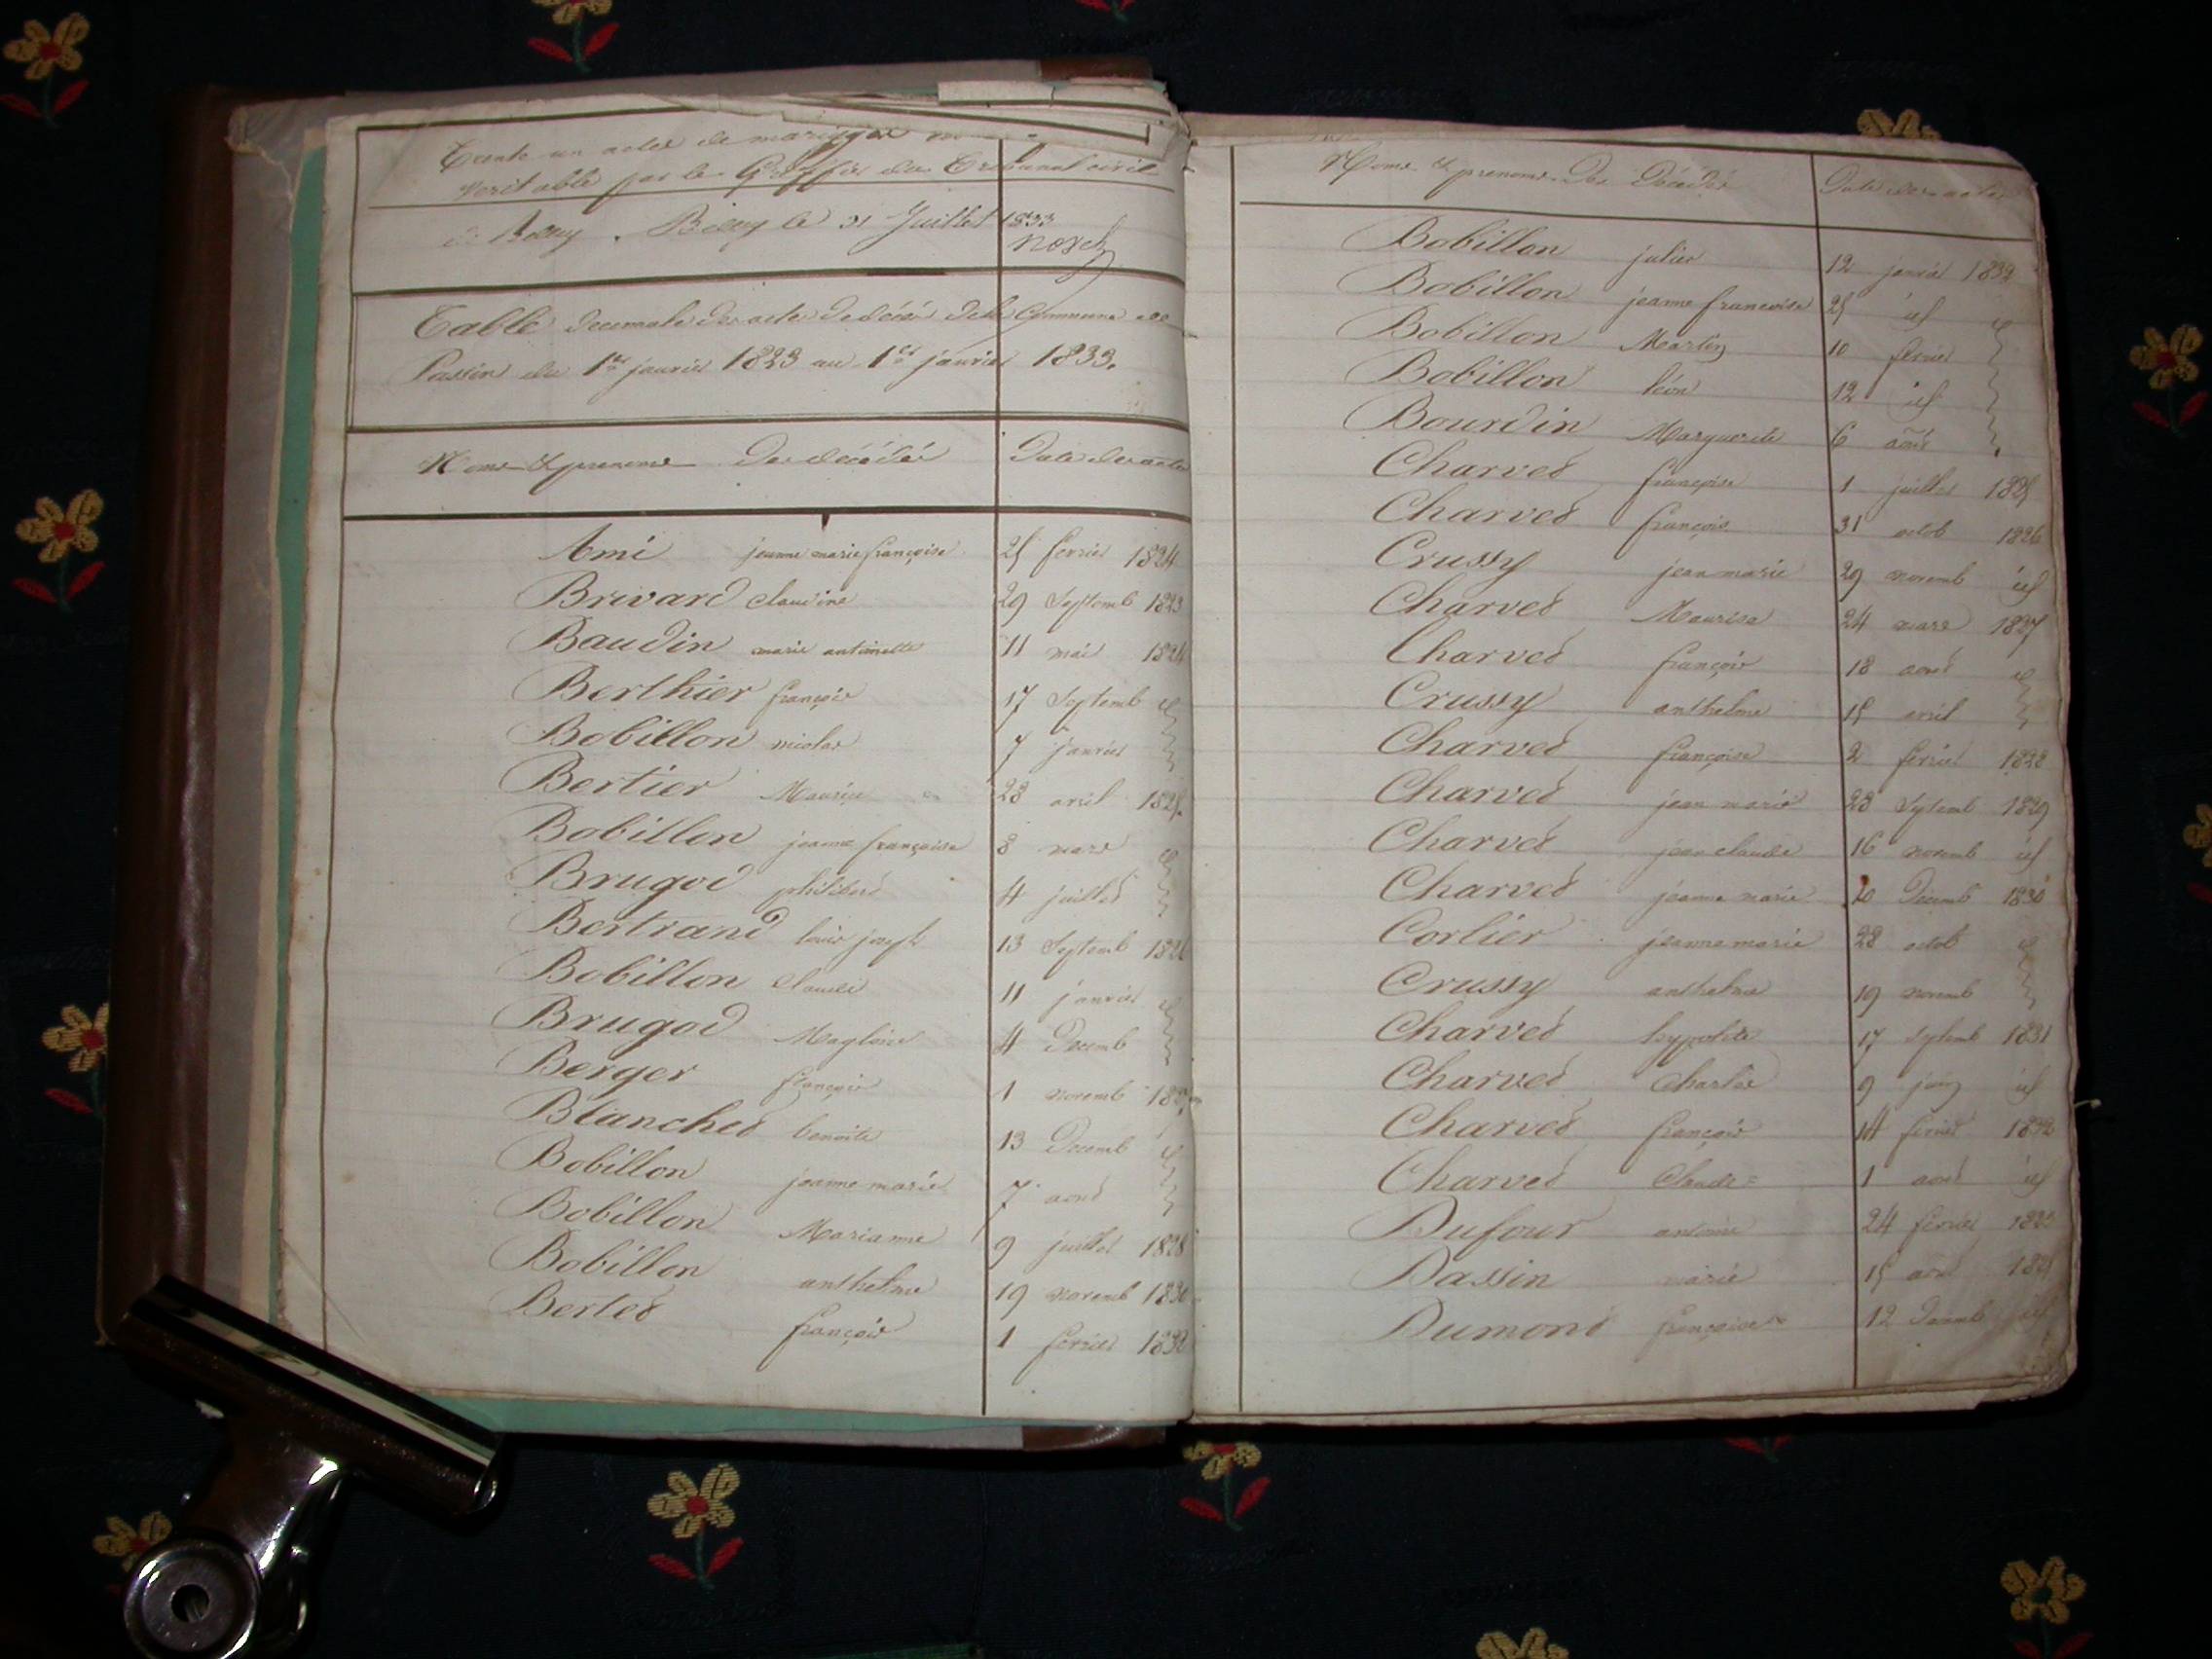 Trente un actes de mariages
veritable par le Greffier du Tribunal civil
de Belley. Belley le 31 Juillet 1833
Table decennale des actes de décès de la Commune de
Passin du 1er janvier 1823 au 1er janvier 1833.
Noms & prenoms des décédés Date des actes
Ami jeanne marie françoise 25 fevrier 1824
Brivard claudine 29 Septemb 1823
Baudin marie antoinette 11 mai 1824
Berthier françois 17 Septemb id
Bobillon nicolas 7 janvier
Bertier Maurice 28 avril 1825
Bobillon jeanne françoise 8 mars id
Brugod philibert 4 juillet
Bertrand louis joseph 13 Septemb 1826
Bobillon Claude 11 janvier id
Brugod Magloire 4 Decemb
Berger françois 1 novemb 1827
Blanched benoite 13 Decemb id
Bobillon jeanne marie 7 aoud
Bobillon Marianne 9 juillet 1828
Bobillon anthelme 19 novemb 1830
Berted françois 1 fevrier 1832
Noms & prenoms des décédés Date des actes
Bobillon julien 12 janvier 1832
Bobillon jeanne francoise 25 id id
Bobillon Martin 10 fevrier
Bobillon léon 12 id
Bourdin Marguerite 6 aoud
Charved françoise 1 juillet 1825
Charved françois 31 octob 1826
Crussy jean marie 29 novemb id
Charved Maurise 24 mars 1827
Charved françois 18 aoud id
Crussy anthelme 15 avril
Charved françoise 2 fevrier 1828
Charved jean marie 23 Septemb 1829
Charved jean claude 16 novemb id
Charved jeanne marie 20 Decemb 1830
Corlier jeanne marie 28 octob id
Crussy anthelme 19 novemb
Charved hypolite 17 Septemb 1831
Charved Charles 9 juin id
Charved françois 14 fevrier 1832
Charved Claude 1 aoud id
Dufour antoine 24 fevrier 1825
Dassin marie 15 aoud 1825
Dumond françoise 12 Decemb id